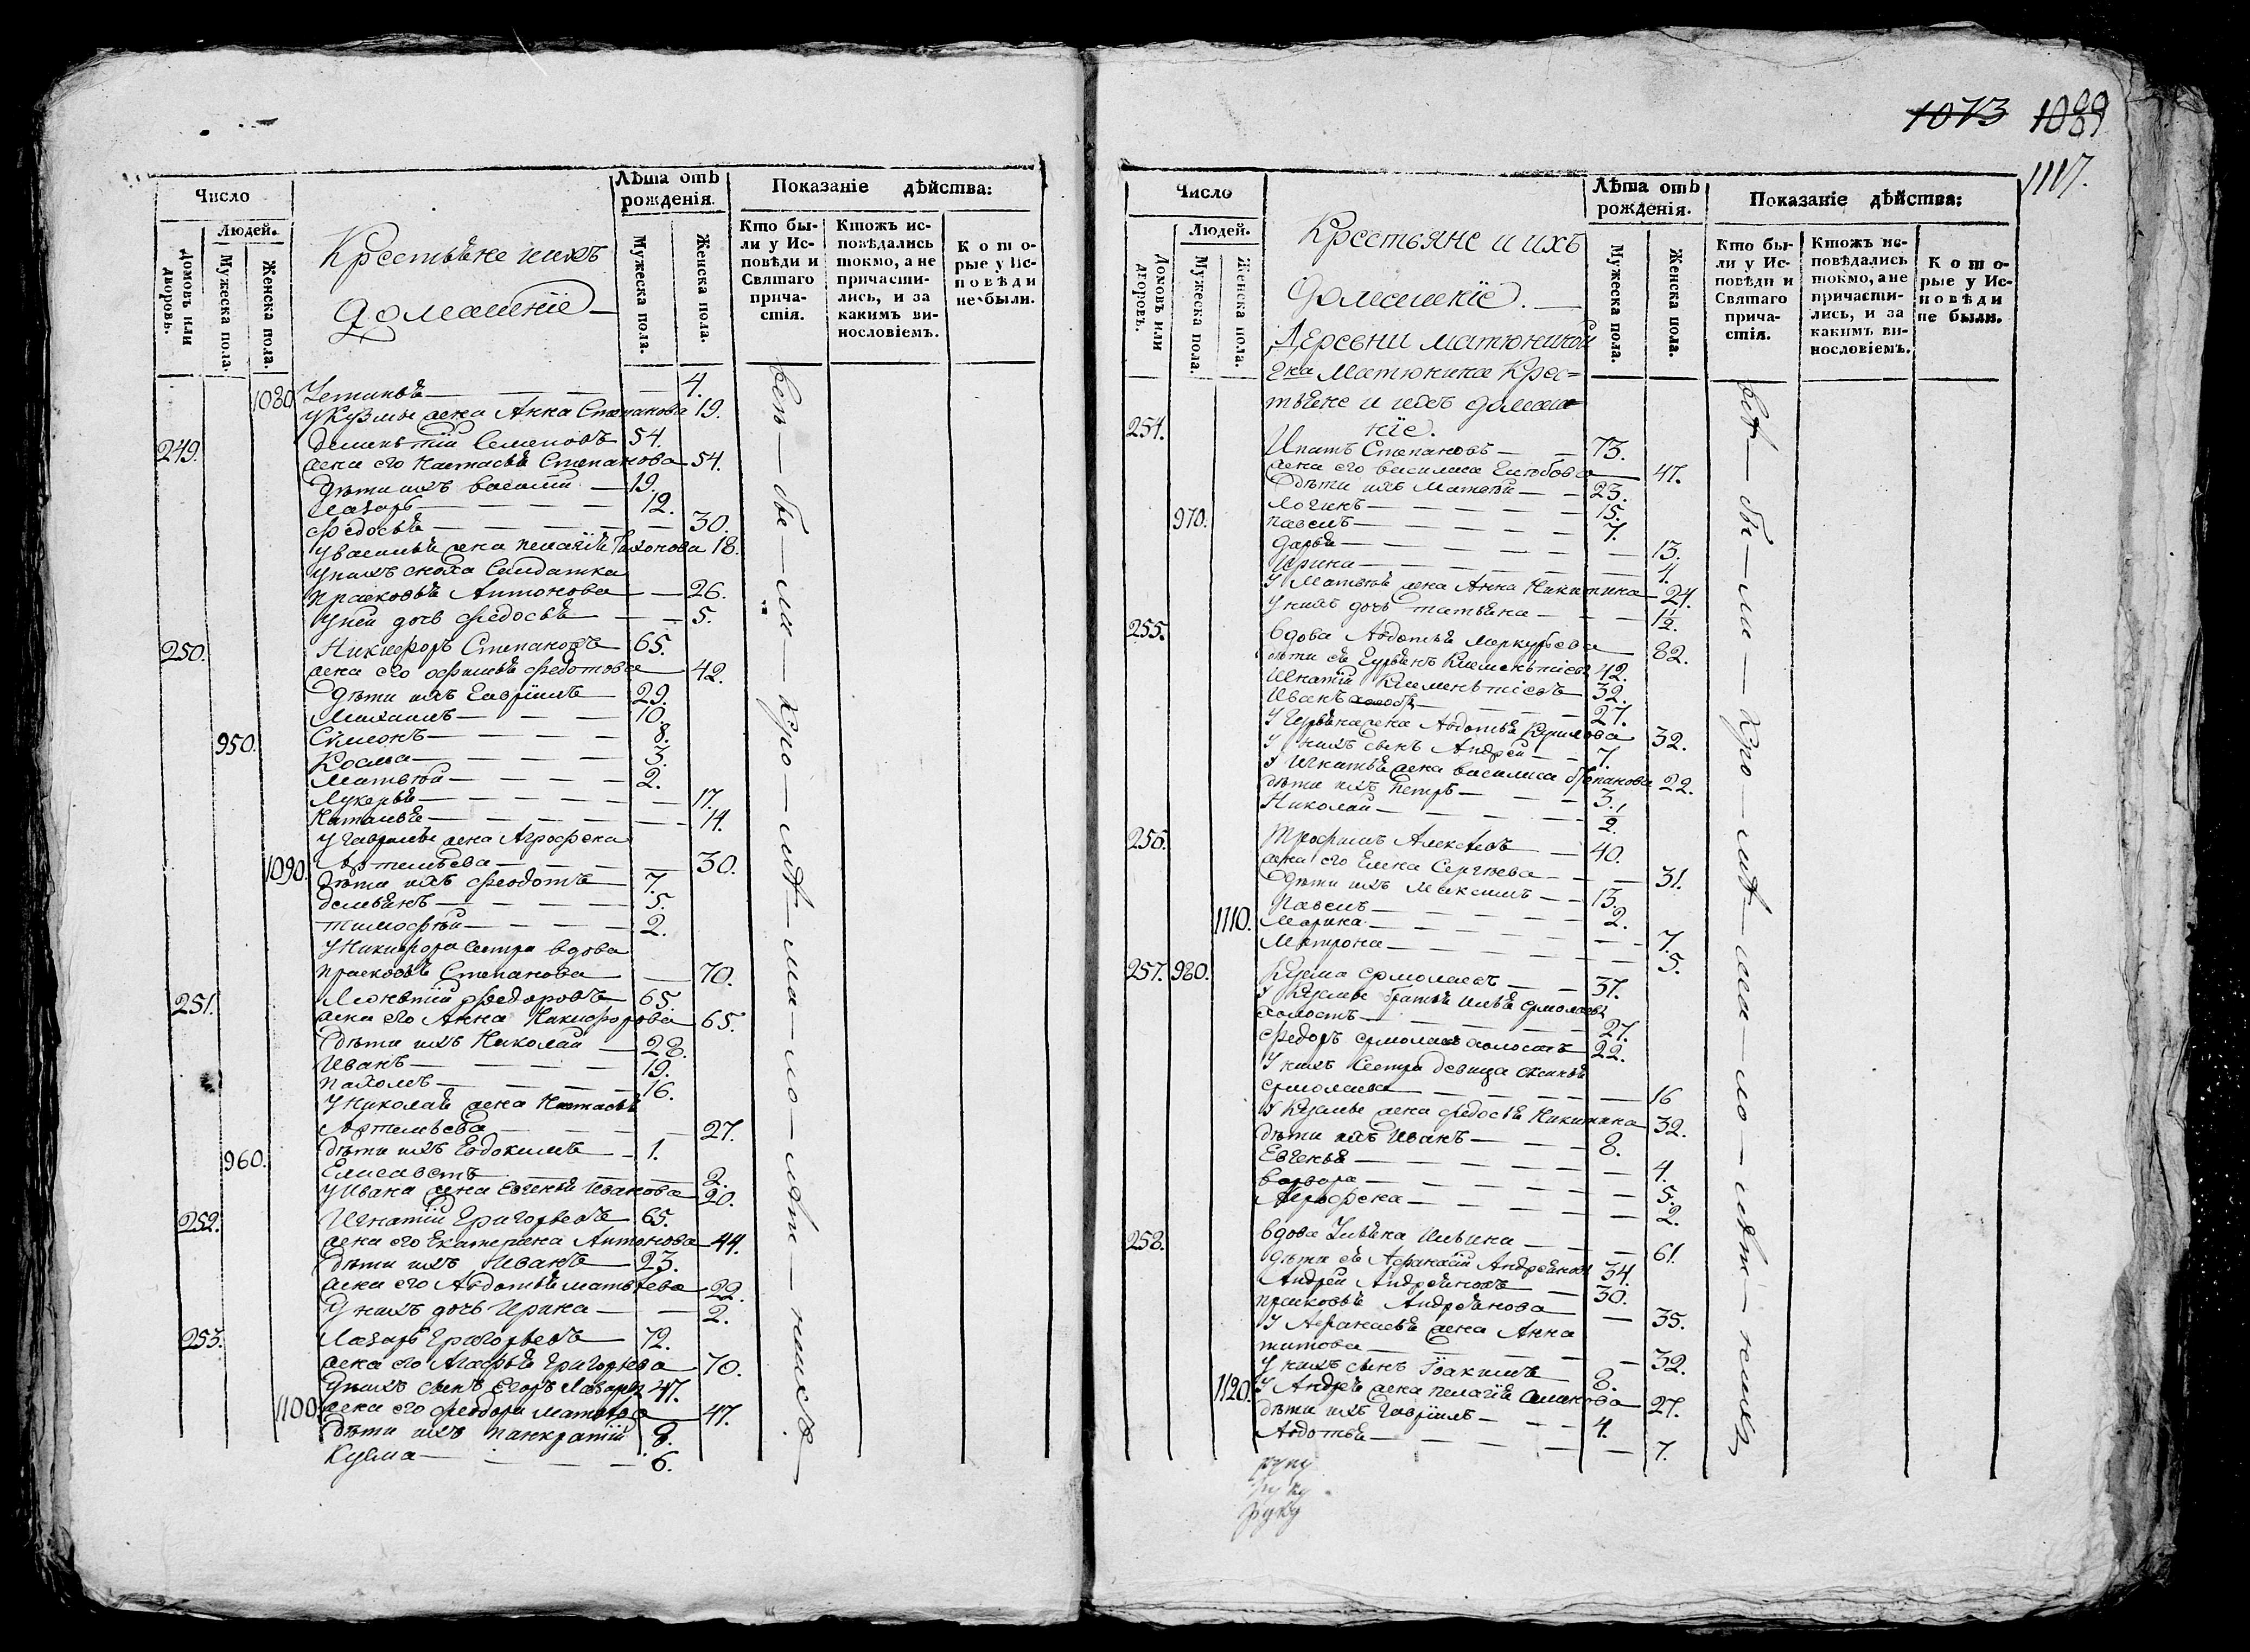 Число
Людей.
Домовъ или дворовъ.
Мужеска пола.
Женска пола.
Крестьяне и ихъ
домашніе
Лѣта отъ рожденія.
Мужеска пола.
Женска пола.
Показаніе дѣйства:
Кто бы-
ли у Ис-
повѣди и
Святаго
прича-
стія.
Ктожъ ис-
повѣдались
токмо, а не
причасти-
лись, и за
какимъ ви-
нословіемъ.
Кото-
рые у Ис-
повѣди
не были.
1080 Устинья 4.
у Кузмы жена Анна Степанова 19.
249. Дементій Семеновъ 54.
жена его Настасья Степанова 54.
дѣти ихъ Василій 19.
Лазарь 12.
Федосья 30.
у Василья жена Пелагія 18.
у нихъ сноха Салдатка
Прасковья Антонова 26.
у ней дочь Федосья 5.
250. Никифоръ Степановъ 65.
жена его Офимья Федотова 42.
дѣти ихъ Гавріилъ 29.
Михаилъ 10.
950. Сѵмеонъ 8.
Косма 3.
Матвѣй 2.
Лукерья 17.
Наталья 14.
у Гаврилы жена Агрофена
1090. Артемьева 30.
дѣти ихъ Феодотъ 7.
Демьянъ 5.
Тимофѣй 2.
у Никифора сестра вдова
Прасковья Степанова 70.
251. Леонтій Федоровъ 65.
жена его Анна Никифорова 65.
дѣти ихъ Николай 28.
Иванъ 19.
Пахомъ 16.
у Николая жена Настасья
Артемьева 27.
960. дѣти ихъ Евдокимъ 1.
Елисаветъ 2.
у Ивана жена Евгенья Иванова 20.
252. Игнатій Григорьевъ 65.
жена его Екатерина Антонова 44.
дѣти ихъ Иванъ 23.
жена его Авдотья Матвѣева 22.
у нихъ дочь Ирина 2.
253. Лазарь Григорьевъ 72.
жена его Агафья Григорьева 70.
у нихъ сынъ Егоръ Лазаревъ 47.
1100. жена его Феодора Матвѣева 47.
дѣти ихъ Панкратій 8.
Кузма 6.
1073 1089
1117.
Число
Людей.
Домовъ или дворовъ.
Мужеска пола.
Женска пола.
Крестьяне и ихъ
домашніе.
Деревни Матюниной
гна Матюнина Крес=
тьяне и ихъ домаш=
ніе.
Лѣта отъ рожденія.
Мужеска пола.
Женска пола.
Показаніе дѣйства:
Кто бы-
ли у Ис-
повѣди и
Святаго
прича-
стія.
Ктожъ ис-
повѣдались
токмо, а не
причасти-
лись, и за
какимъ ви-
нословіемъ.
Кото-
рые у Ис-
повѣди
не были.
254. Ипатъ Степановъ 73.
жена его Василиса 47.
дѣти ихъ Матвѣй 23.
Логинъ 15.
970. Павелъ 7.
Дарья 13.
Ирина 4.
у Матвѣя жена Анна Никитина 24.
у нихъ дочь Татьяна 1/2.
255. вдова Авдотья Меркурьева 82.
дѣти ея Гурьянъ Клементіевъ 42.
Игнатій Клементіевъ 32.
Иванъ холостъ 27.
у Гурьяна жена Авдотья Кирилова 32.
у нихъ сынъ Андрей 7.
у Игнатья жена Василиса Степанова 22.
дѣти ихъ Петръ 3.
Николай 1/2.
256. Трофимъ Алексѣевъ 40.
жена его Елена Сергѣева 31.
дѣти ихъ Максимъ 13.
Павелъ 2.
1110. Марина 7.
Матрона 5.
257. 980. Кузма Ермолаевъ 37.
у Кузмы братья Илья Ермолаевъ
холостъ 27.
Федоръ Ермолаевъ холостъ 22.
у нихъ сестра девица Аксинья
Ермолаева 16
у Кузмы жена Федосья Никитина 32.
дѣти ихъ Иванъ 8.
Евгенья 4.
Варвара 5.
Агрофена 2.
258. вдова Ульяна Ильина 61.
дѣти ея Афанасій Андреяновъ 34.
Андрей Андреяновъ 30.
Прасковья Андреянова 35.
у Афанасья жена Анна
Титова 32.
у нихъ сынъ Іоакимъ 8.
1120. у Андрея жена Пелагія Семенова 27.
дѣти ихъ Гавріилъ 4.
Авдотья 7.
руку
руку
руку